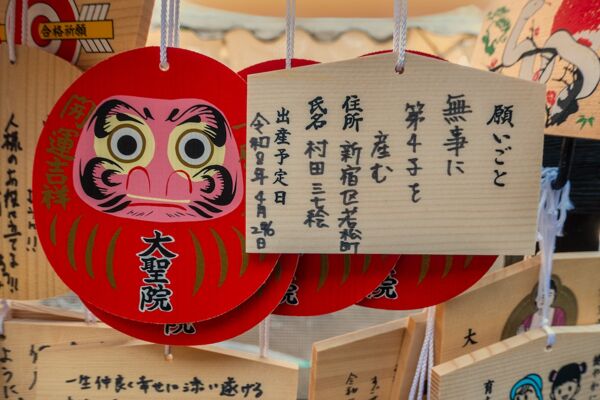 合格祈願
開運吉祥
大聖院
願いごと
無事に
第4子を
産む
住所 新宿区若松町
氏名 村田 三七絵
出産予定日
令和8年4月26日
人様のお役に立てます
一生仲良く幸せに添い遂げる
大
育
令和